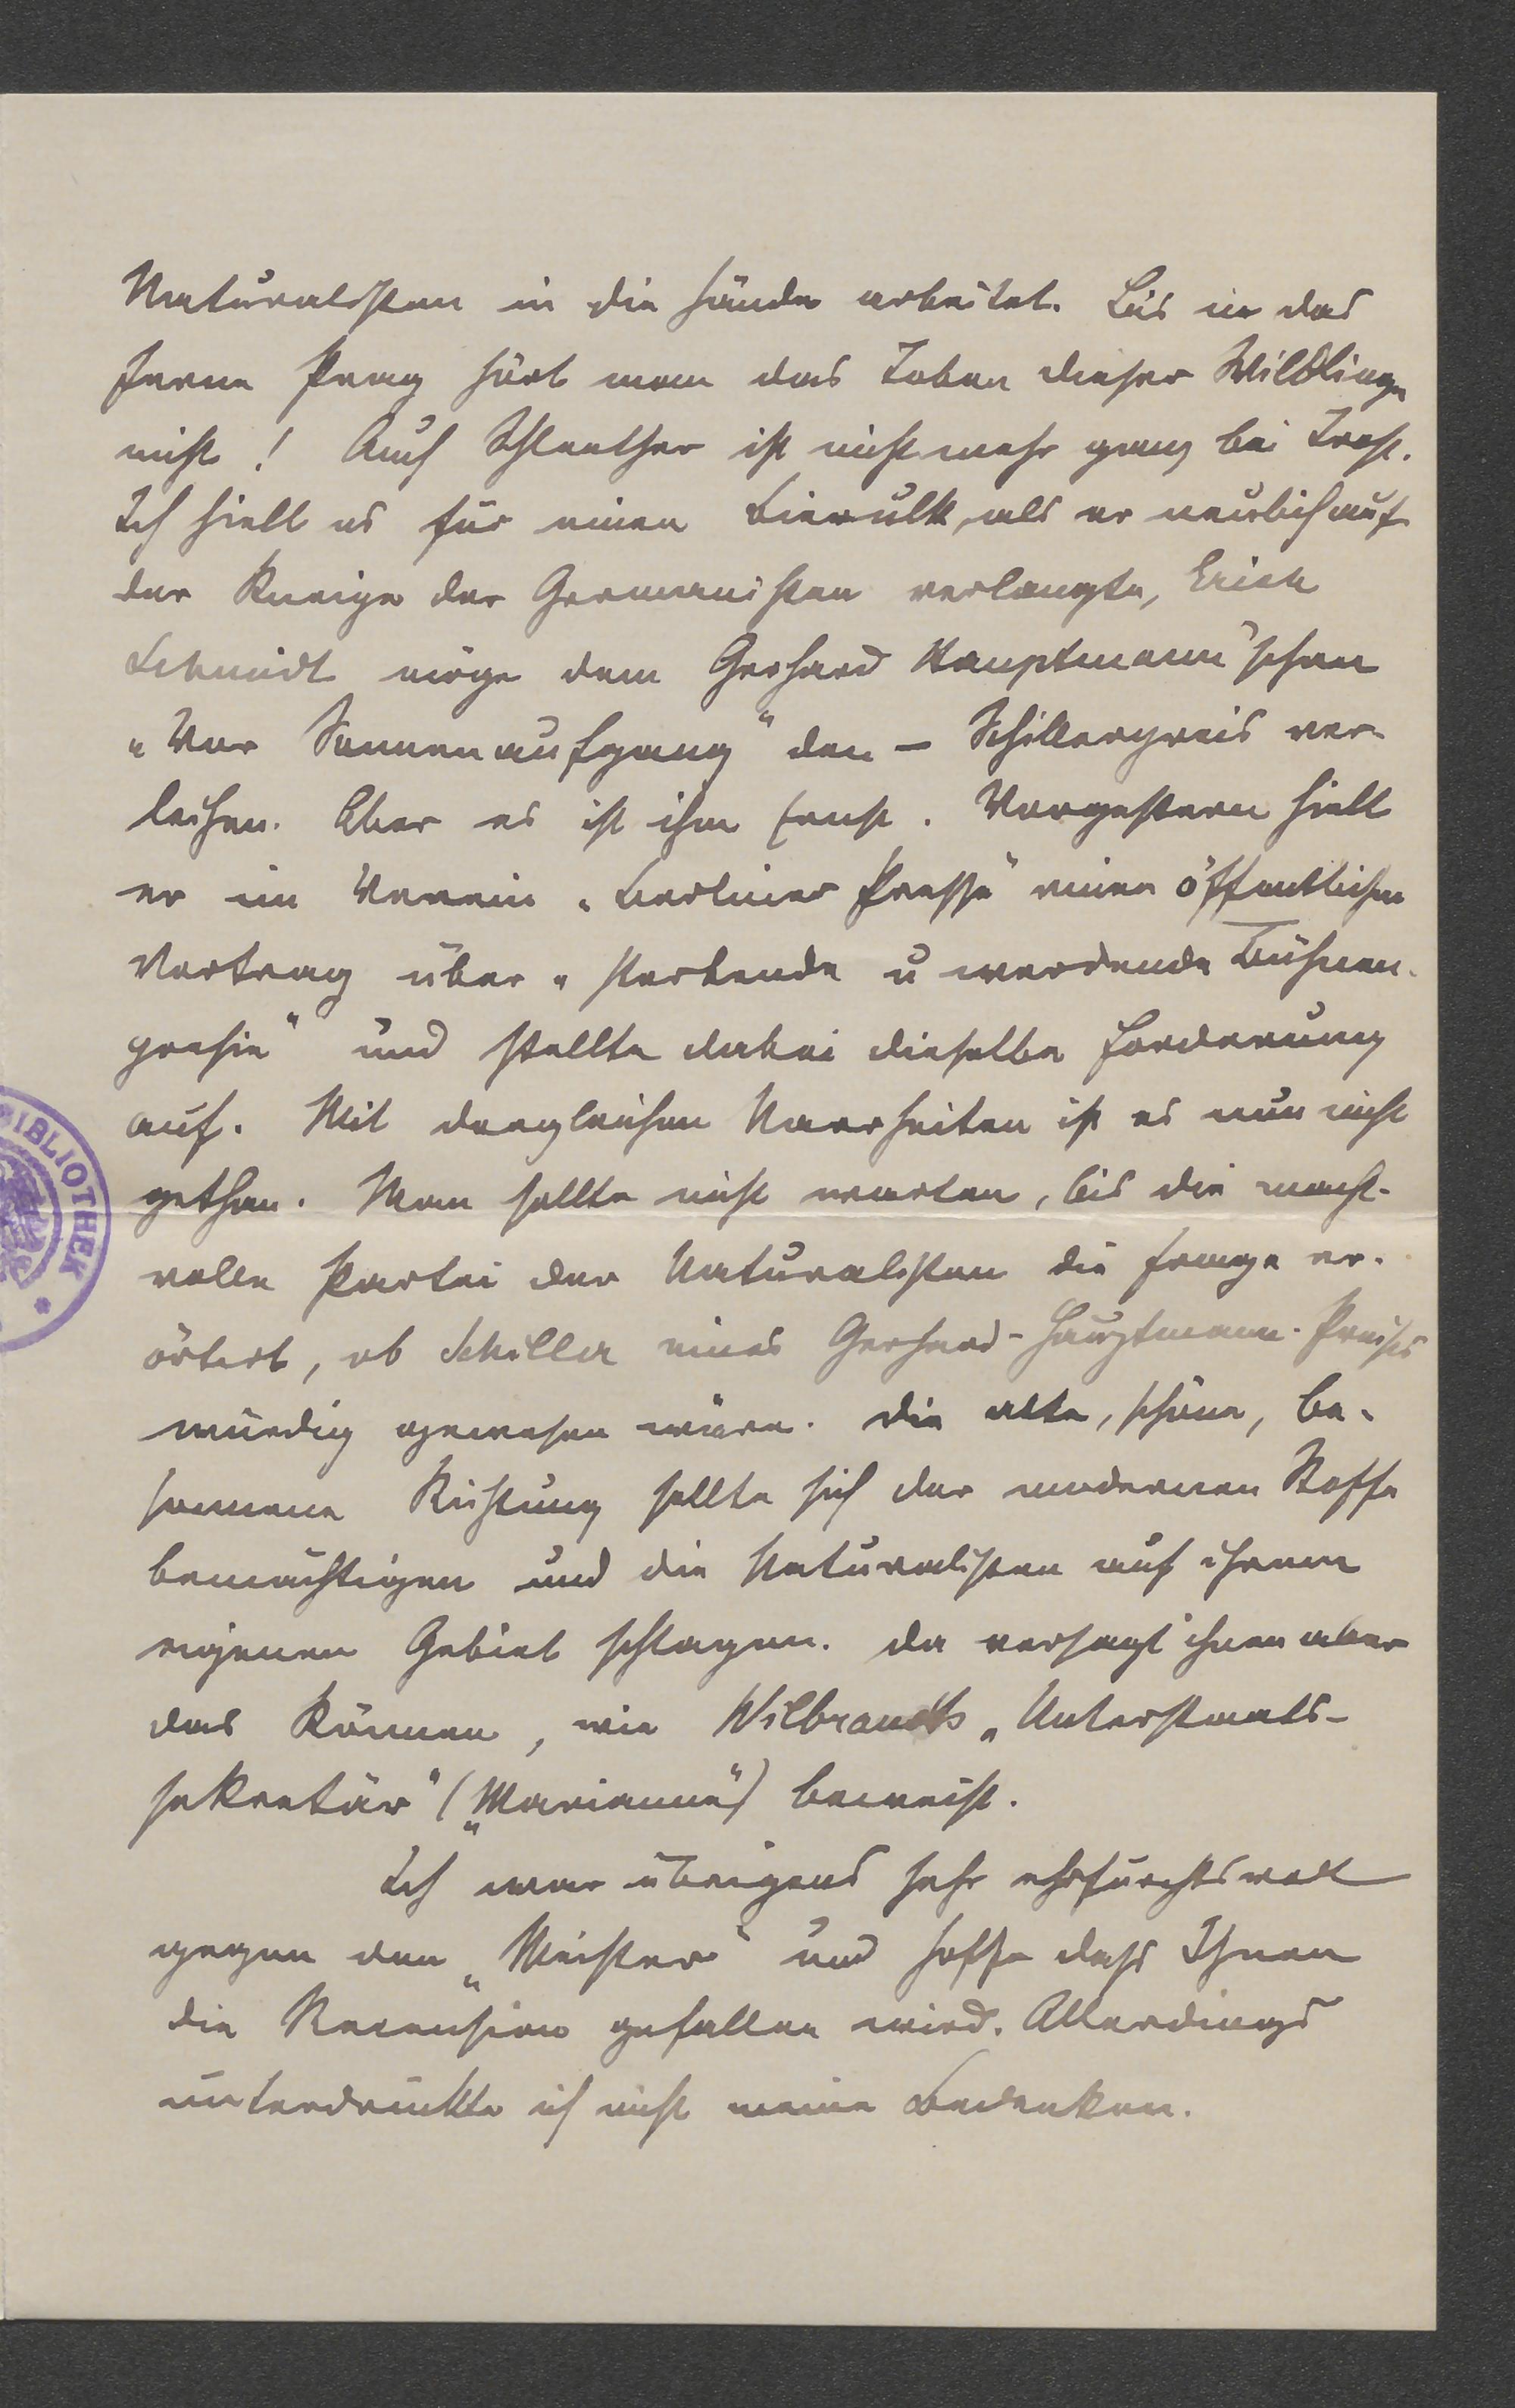 Naturalisten in die Hände arbeitet. Bis in das
ferne Prag hört man das Toben dieser Wildlinge
nicht! Auch Schlenther ist nicht mehr ganz bei Trost.
Ich hielt es für einen Bierulk, als er neulich auf
der Kneipe der Germanisten verlangte, Erich
Schmidt möge dem Gerhard Hauptmann'schen
„Vor Sonnenaufgang" den – Schillerpreis ver-
leihen. Aber es ist ihm Ernst. Vorgestern hielt
er im Verein „Berliner Presse" einen öffentlichen
Vortrag über „sterbende u werdende Bühnen-
poesie" und stellte dabei dieselbe Forderung
auf. Mit dergleichen Narrheiten ist es nun nicht
gethan. Man sollte nicht warten, bis die macht-
volle Partei der Naturalisten die Frage er-
örtert, ob Schiller eines Gerhard-Hauptmann-Preises
würdig gewesen wäre. Die alte, schöne, be-
sonnene Richtung sollte sich der modernen Stoffe
bemächtigen und die Naturalisten auf ihrem
eigenen Gebiet schlagen. Da versagt ihnen aber
das Können, wie Wilbrandts „Unterstaats-
sekretär" („Marianne") beweist.
Ich war übrigens sehr ehrfurchtsvoll
gegen den „Meister" und hoffe dass Ihnen
die Recension gefallen wird. Allerdings
unterdrückte ich nicht meine Bedenken.
BIBLIOTHEK